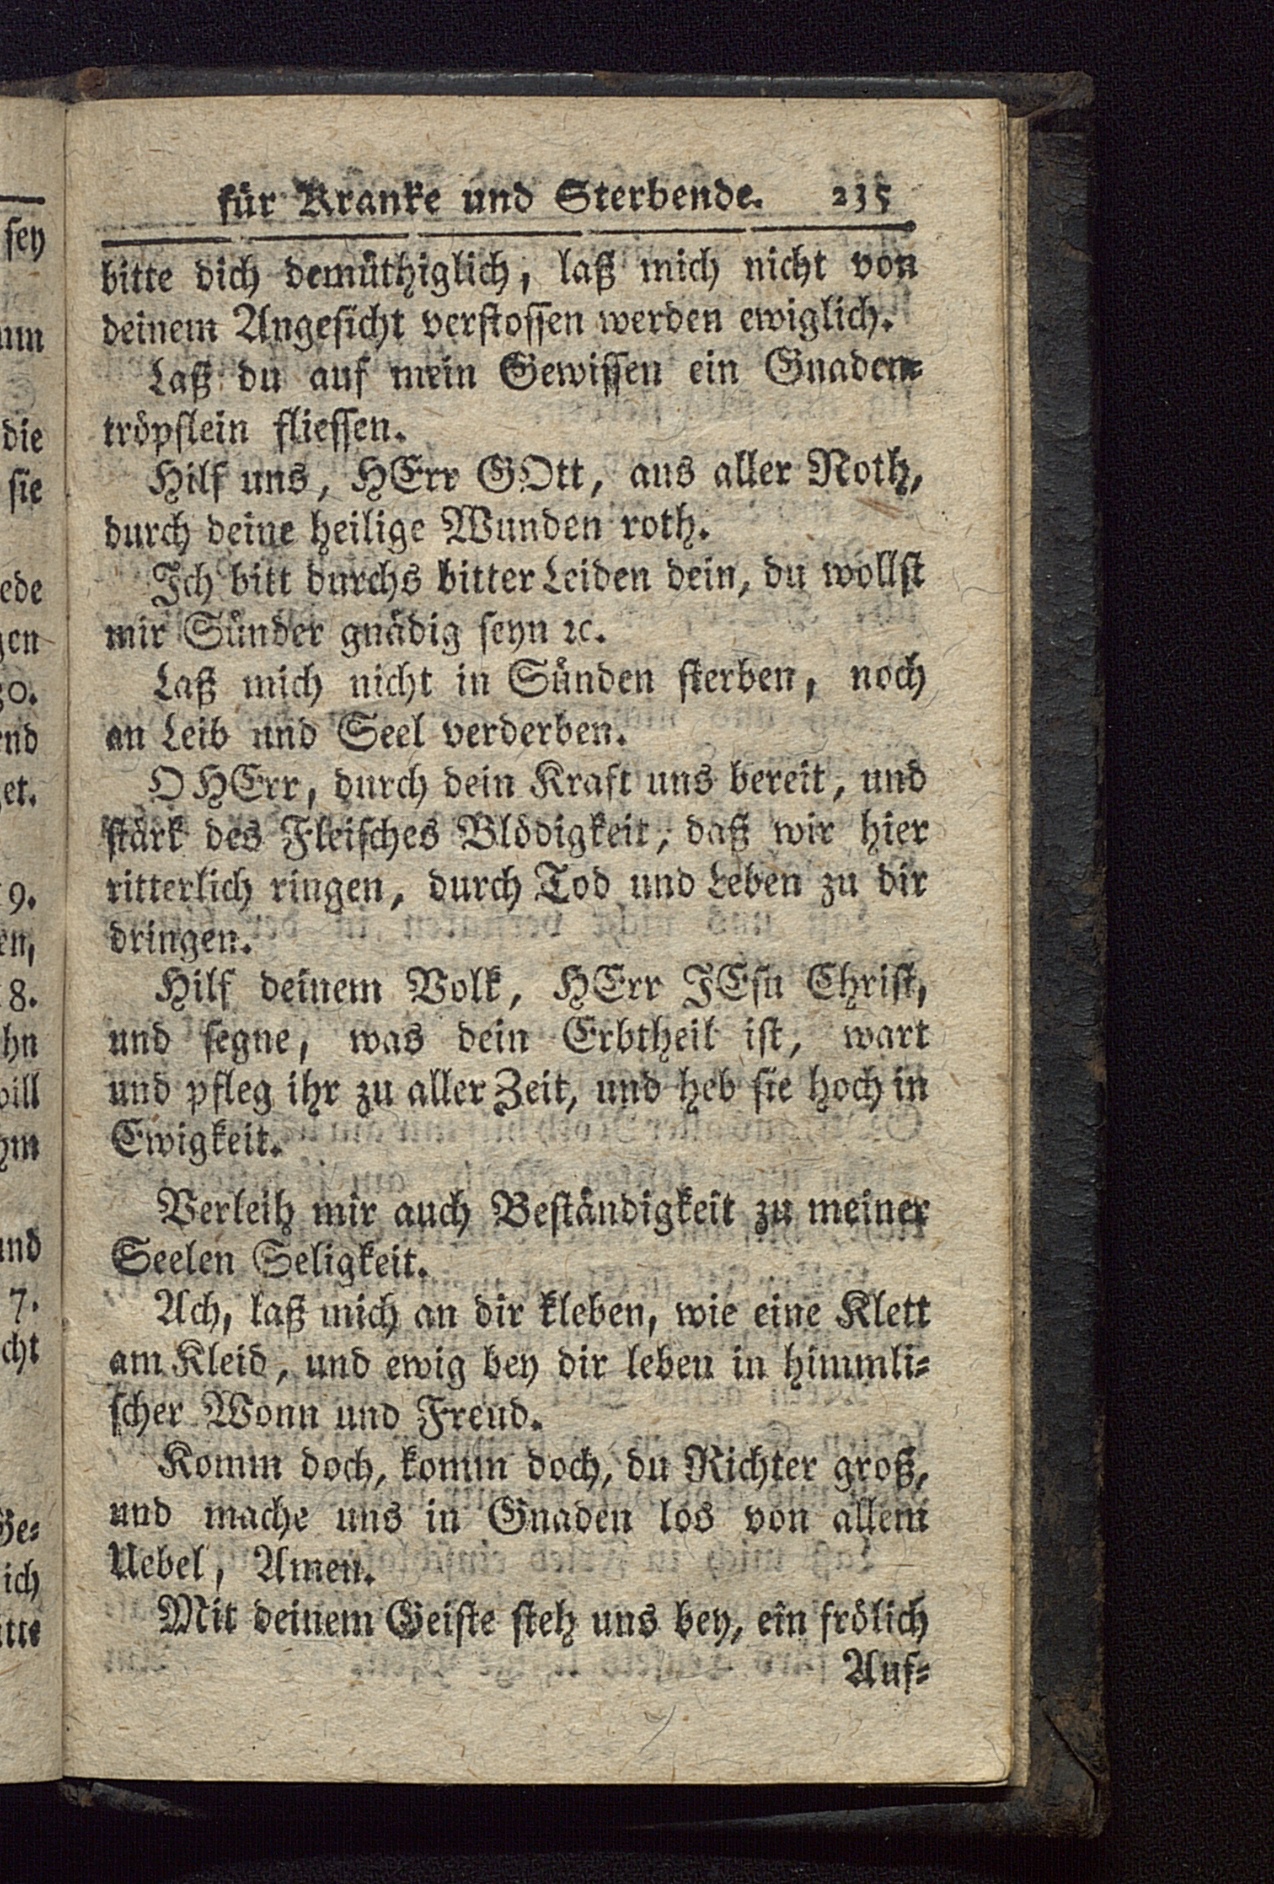 für Kranke und Sterbende. 235
bitte dich demüthiglich, laß mich nicht von
deinem Angesicht verstossen werden ewiglich.
Laß du auf mein Gewissen ein Gnaden-
tröpflein fliessen.
Hilf uns, HErr GOtt, aus aller Noth,
durch deine heilige Wunden roth.
Ich bitt durchs bitter Leiden dein, du wollst
mir Sünder gnädig seyn ꝛc.
Laß mich nicht in Sünden sterben, noch
an Leib und Seel verderben.
O HErr, durch dein Kraft uns bereit, und
stärk des Fleisches Blödigkeit, daß wir hier
ritterlich ringen, durch Tod und Leben zu dir
dringen.
Hilf deinem Volk, HErr JEsu Christ,
und segne, was dein Erbtheil ist, wart
und pfleg ihr zu aller Zeit, und heb sie hoch in
Ewigkeit.
Verleih mir auch Beständigkeit zu meiner
Seelen Seligkeit.
Ach, laß mich an dir kleben, wie eine Klett
am Kleid, und ewig bey dir leben in himmli-
scher Wonn und Freud.
Komm doch, komm doch, du Richter groß,
und mache uns in Gnaden los von allem
Uebel, Amen.
Mit deinem Geiste steh uns bey, ein frölich
Auf-